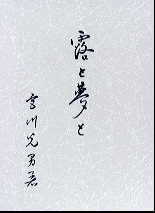 露と夢と
川光男著